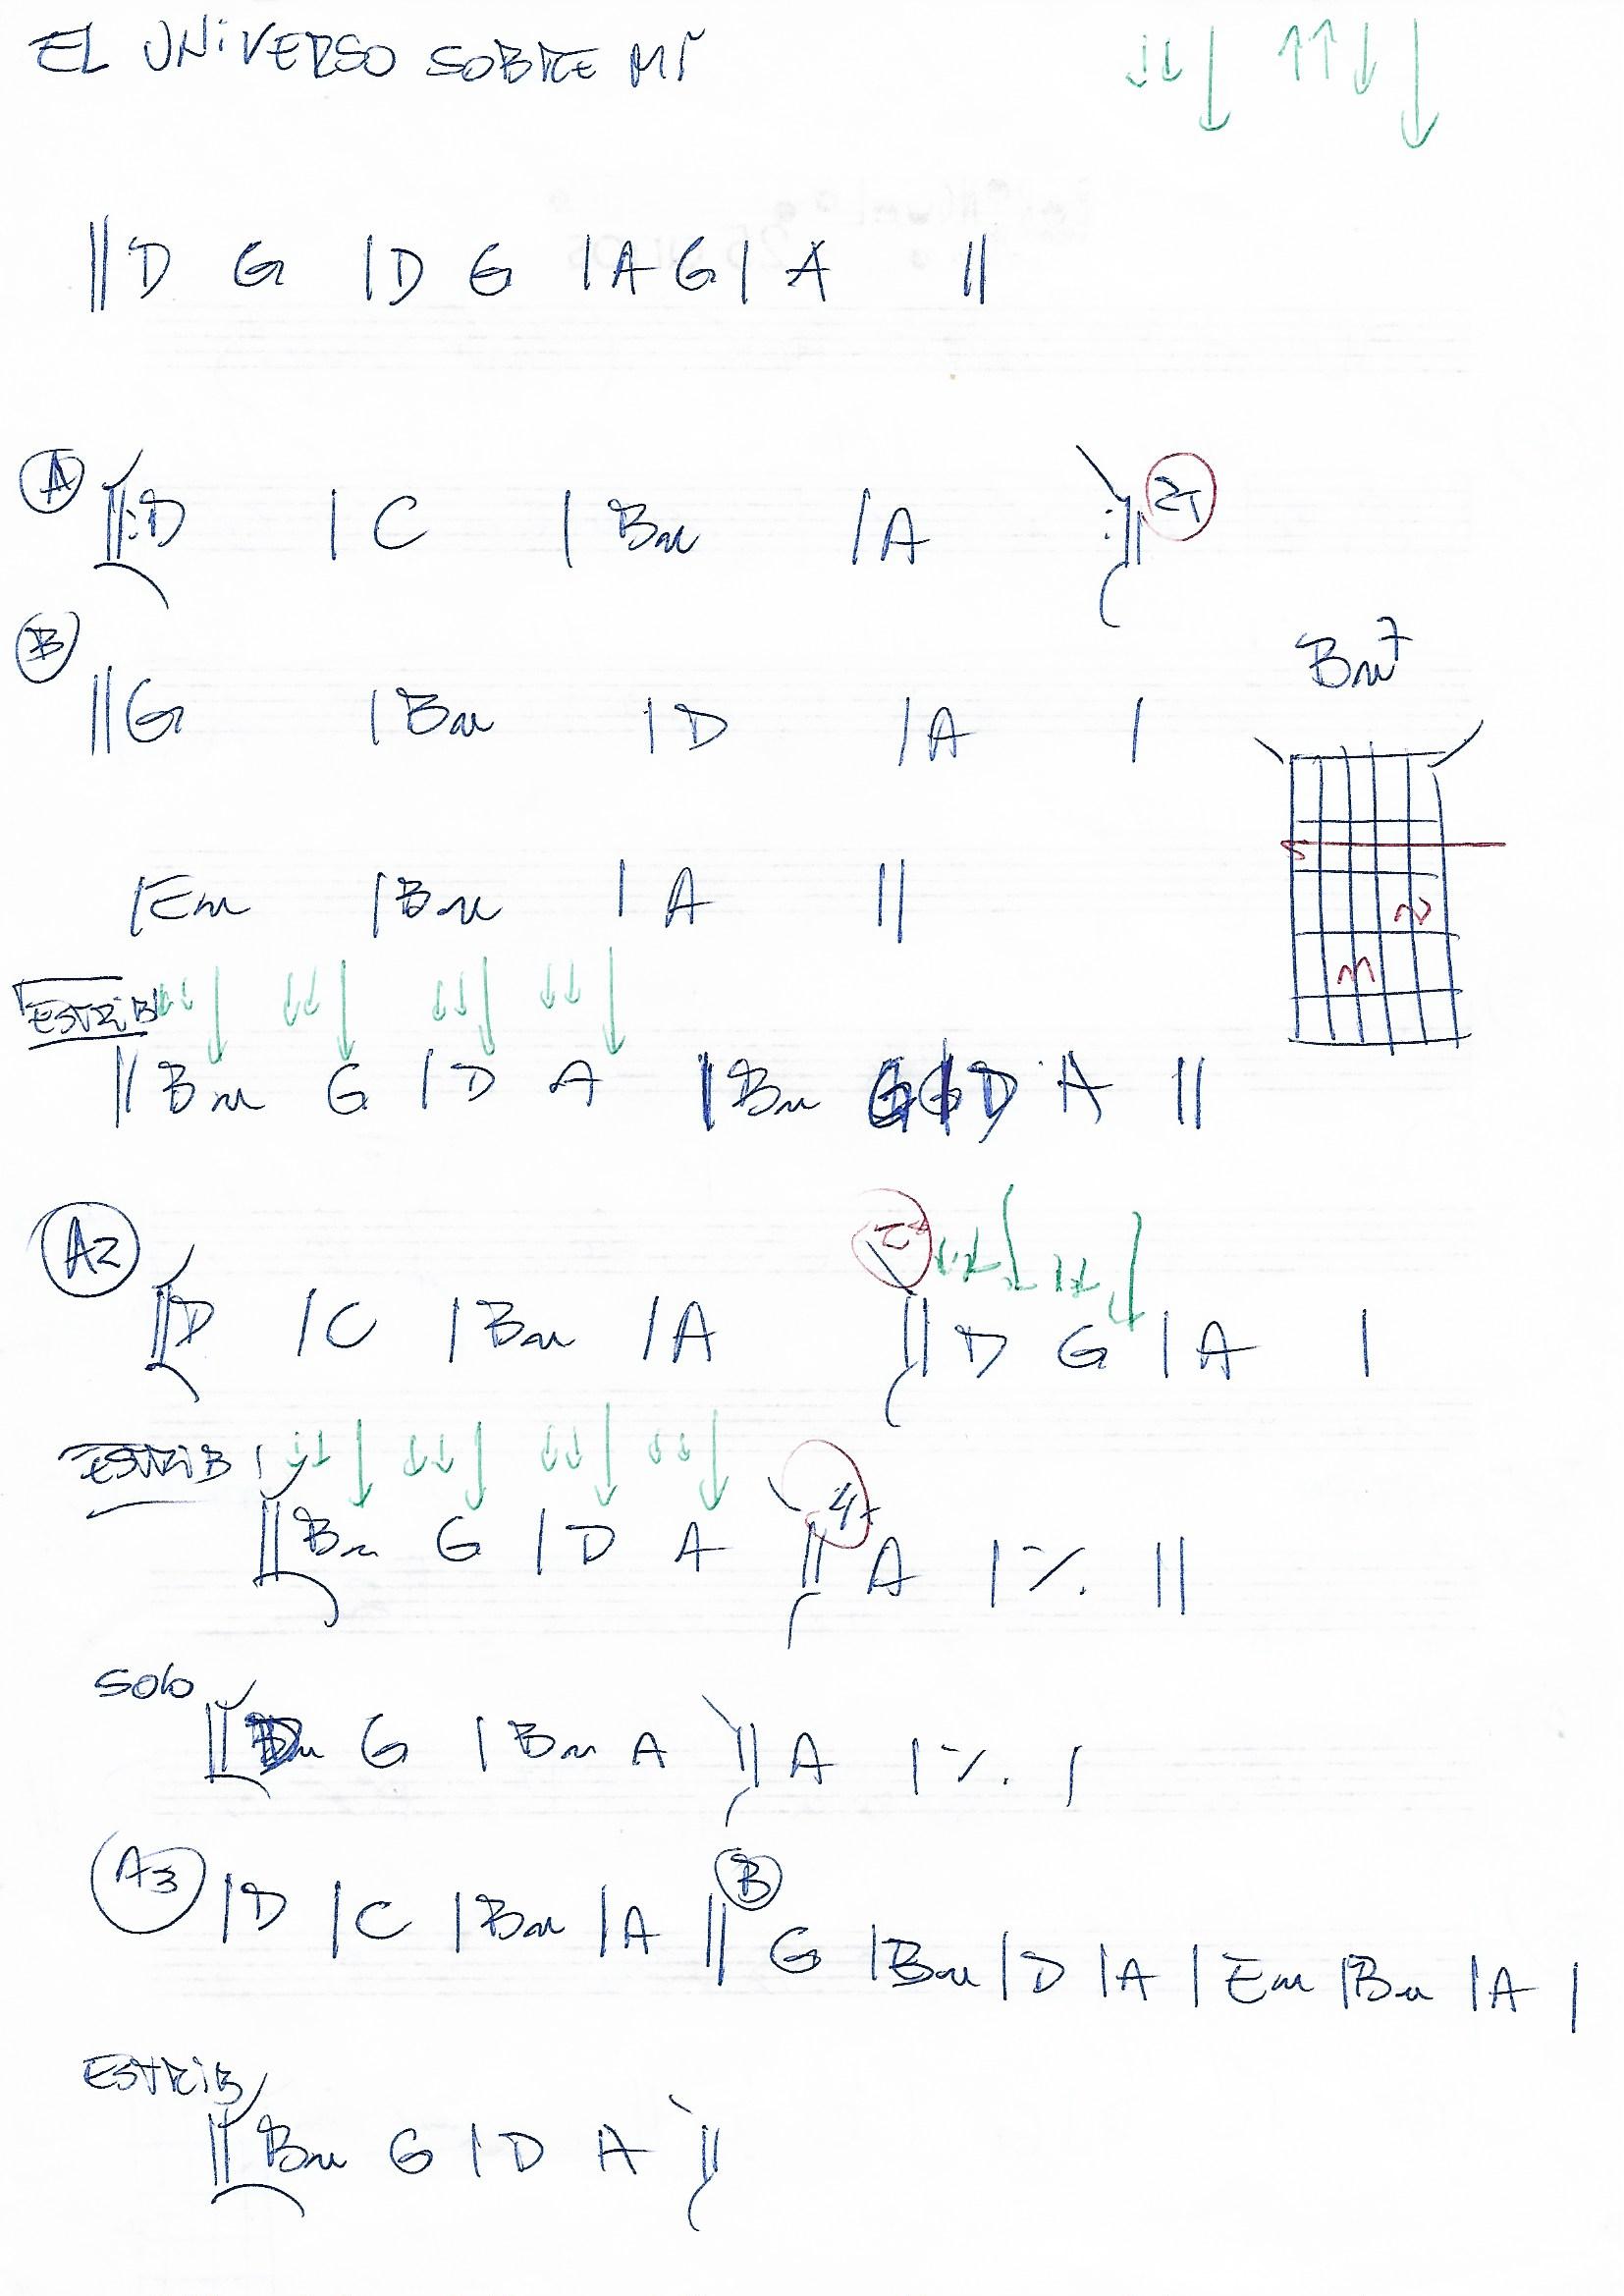 EL UNIVERSO SOBRE MÍ ↓↓↓ ↑↑↓↓
|| D G | D G | A G | A ||
A ||: D | C | Bm | A :|| 2T
B
|| G | Bm | D | A |
Bm7
| Em | Bm | A ||
2
3
ESTRIB ↓↓↓ ↓↓↓ ↓↓↓ ↓↓↓
|| Bm G | D A | Bm G | D A ||
A2 || D | C | Bm | A || D G | A |
ESTRIB ↓↓↓ ↓↓↓ ↓↓↓ ↓↓↓
|| Bm G | D A || 4T A | ٪ ||
SOLO || Bm G | Bm A || A | ٪ |
A3 | D | C | Bm | A || B G | Bm | D | A | Em | Bm | A |
ESTRIB
|| Bm G | D A ||